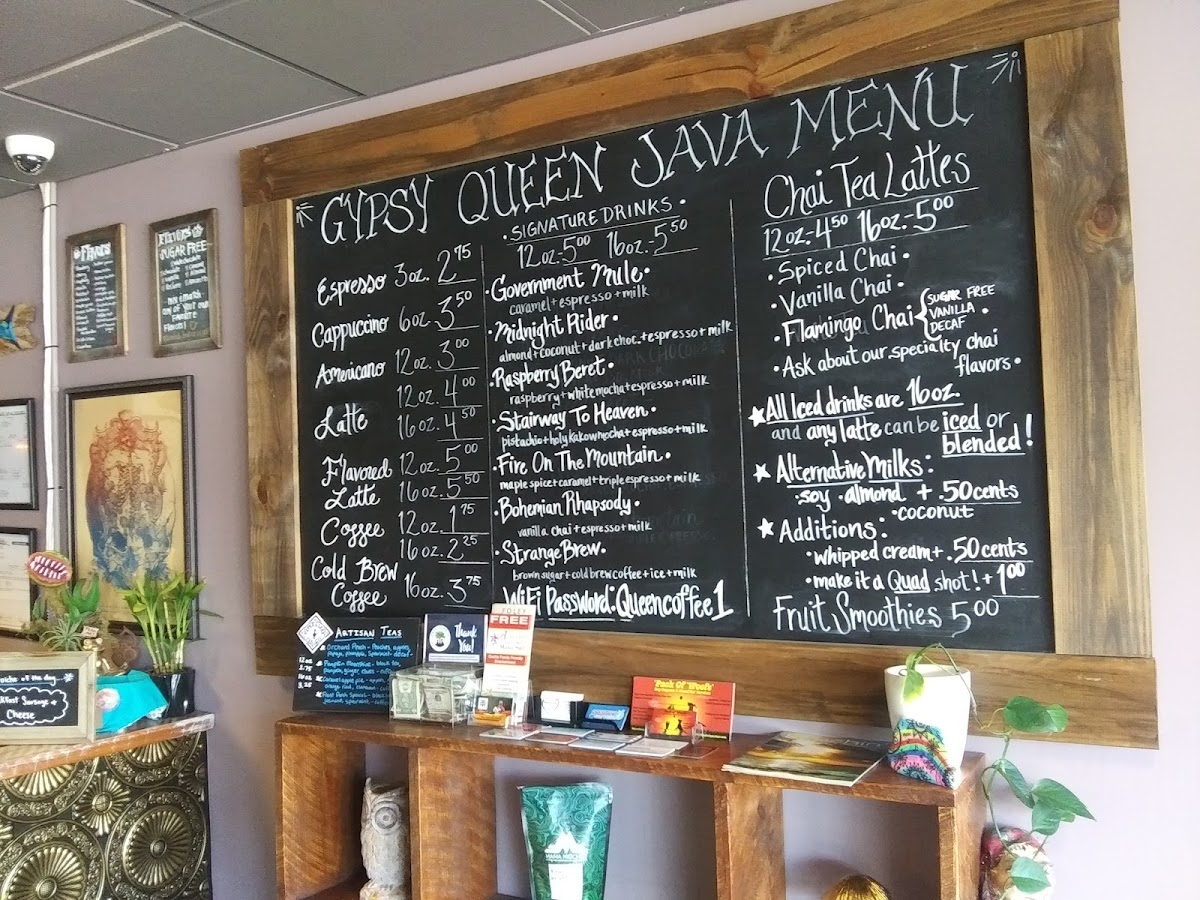 GYPSY QUEEN JAVA MENU
Espresso 3oz. 2.75
Cappuccino 6oz. 3.50
Americano 12oz. 3.00
Latte 12oz. 4.00
16oz. 4.50
Flavored Latte 12oz. 5.00
16oz. 5.50
Coffee 12oz. 1.75
16oz. 2.25
Cold Brew
Coffee 16oz. 3.75
• SIGNATURE DRINKS •
12oz.-5.00 16oz.-5.50
• Government Mule •
caramel + espresso + milk
• Midnight Rider •
almond + coconut + dark choc. + espresso + milk
• Raspberry Beret •
raspberry + white mocha + espresso + milk
• Stairway To Heaven •
pistachio + holy kakow mocha + espresso + milk
• Fire On The Mountain •
maple spice + caramel + triple espresso + milk
• Bohemian Rhapsody •
vanilla chai + espresso + milk
• Strange Brew •
brown sugar + cold brew coffee + ice + milk
WiFi Password: Queencoffee1
Chai Tea Lattes
12oz.-4.50 16oz.-5.00
• Spiced Chai •
• Vanilla Chai •
• Flamingo Chai { SUGAR FREE
VANILLA •
DECAF
• Ask about our specialty chai
flavors •
★ All Iced drinks are 16oz.
and any latte can be iced or
blended!
★ Alternative Milks:
• soy • almond + .50cents
• coconut
★ Additions:
• whipped cream + .50cents
• make it a Quad shot! + 1.00
Fruit Smoothies 5.00
SUGAR FREE
ARTISAN TEAS
Thank
You!
FREE
Pack Of Woofs
of the day...
Sausage
Cheese